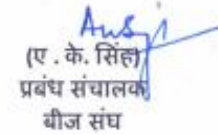 (ए . के. सिंह)
प्रबंध संचालक
बीज संघ